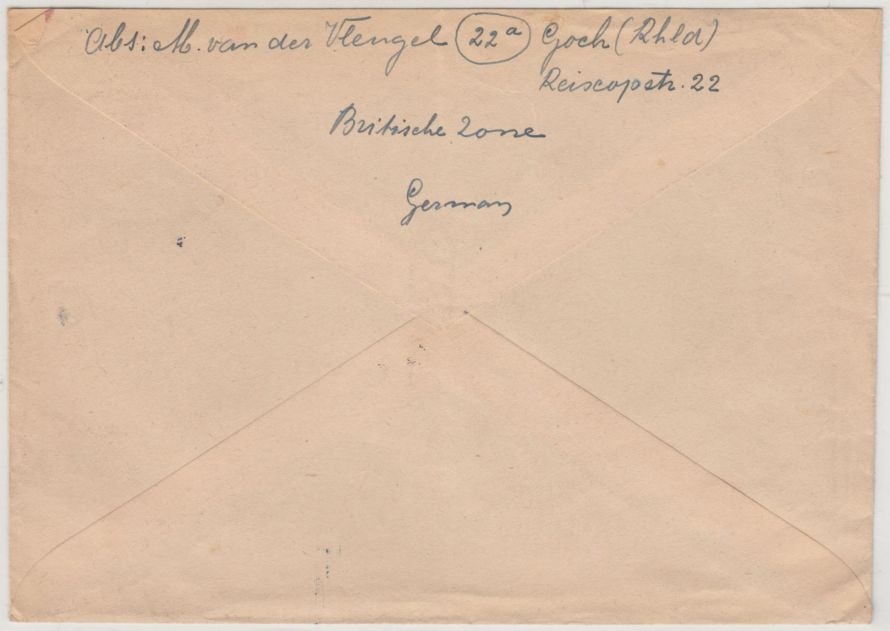 Abs: M. van der Vlengel (22a) Goch (Rhld)
Reiscopstr. 22
Britische Zone
Germany